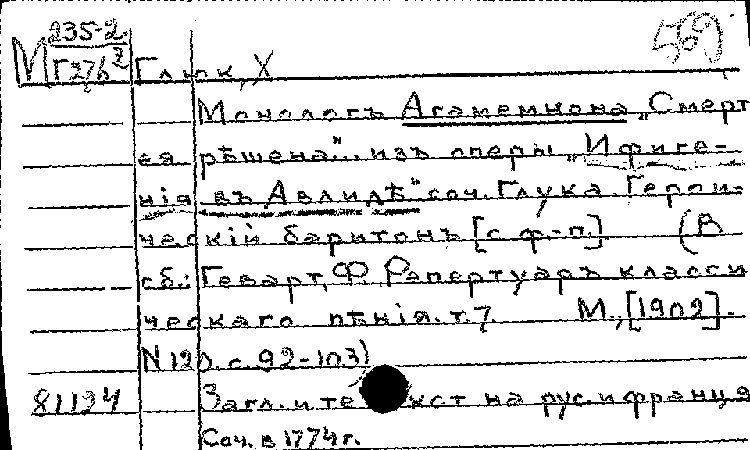 М 235-2 569
Г276² Глюк, Х
Монологъ Агамемнона „Смерт
ея рѣшена"... изъ оперы „Ифиге-
нія въ Авлидѣ" соч. Глука. Герои-
ческій баритонъ [с ф-п.] (В
сб.: Геварт, Ф. Рэпертуаръ класси
ческаго пѣнія. т. 7. М., [1902].
N 120. с. 92-103)
81134 Загл. и текст на рус. и француз
Соч. в 1774 г.